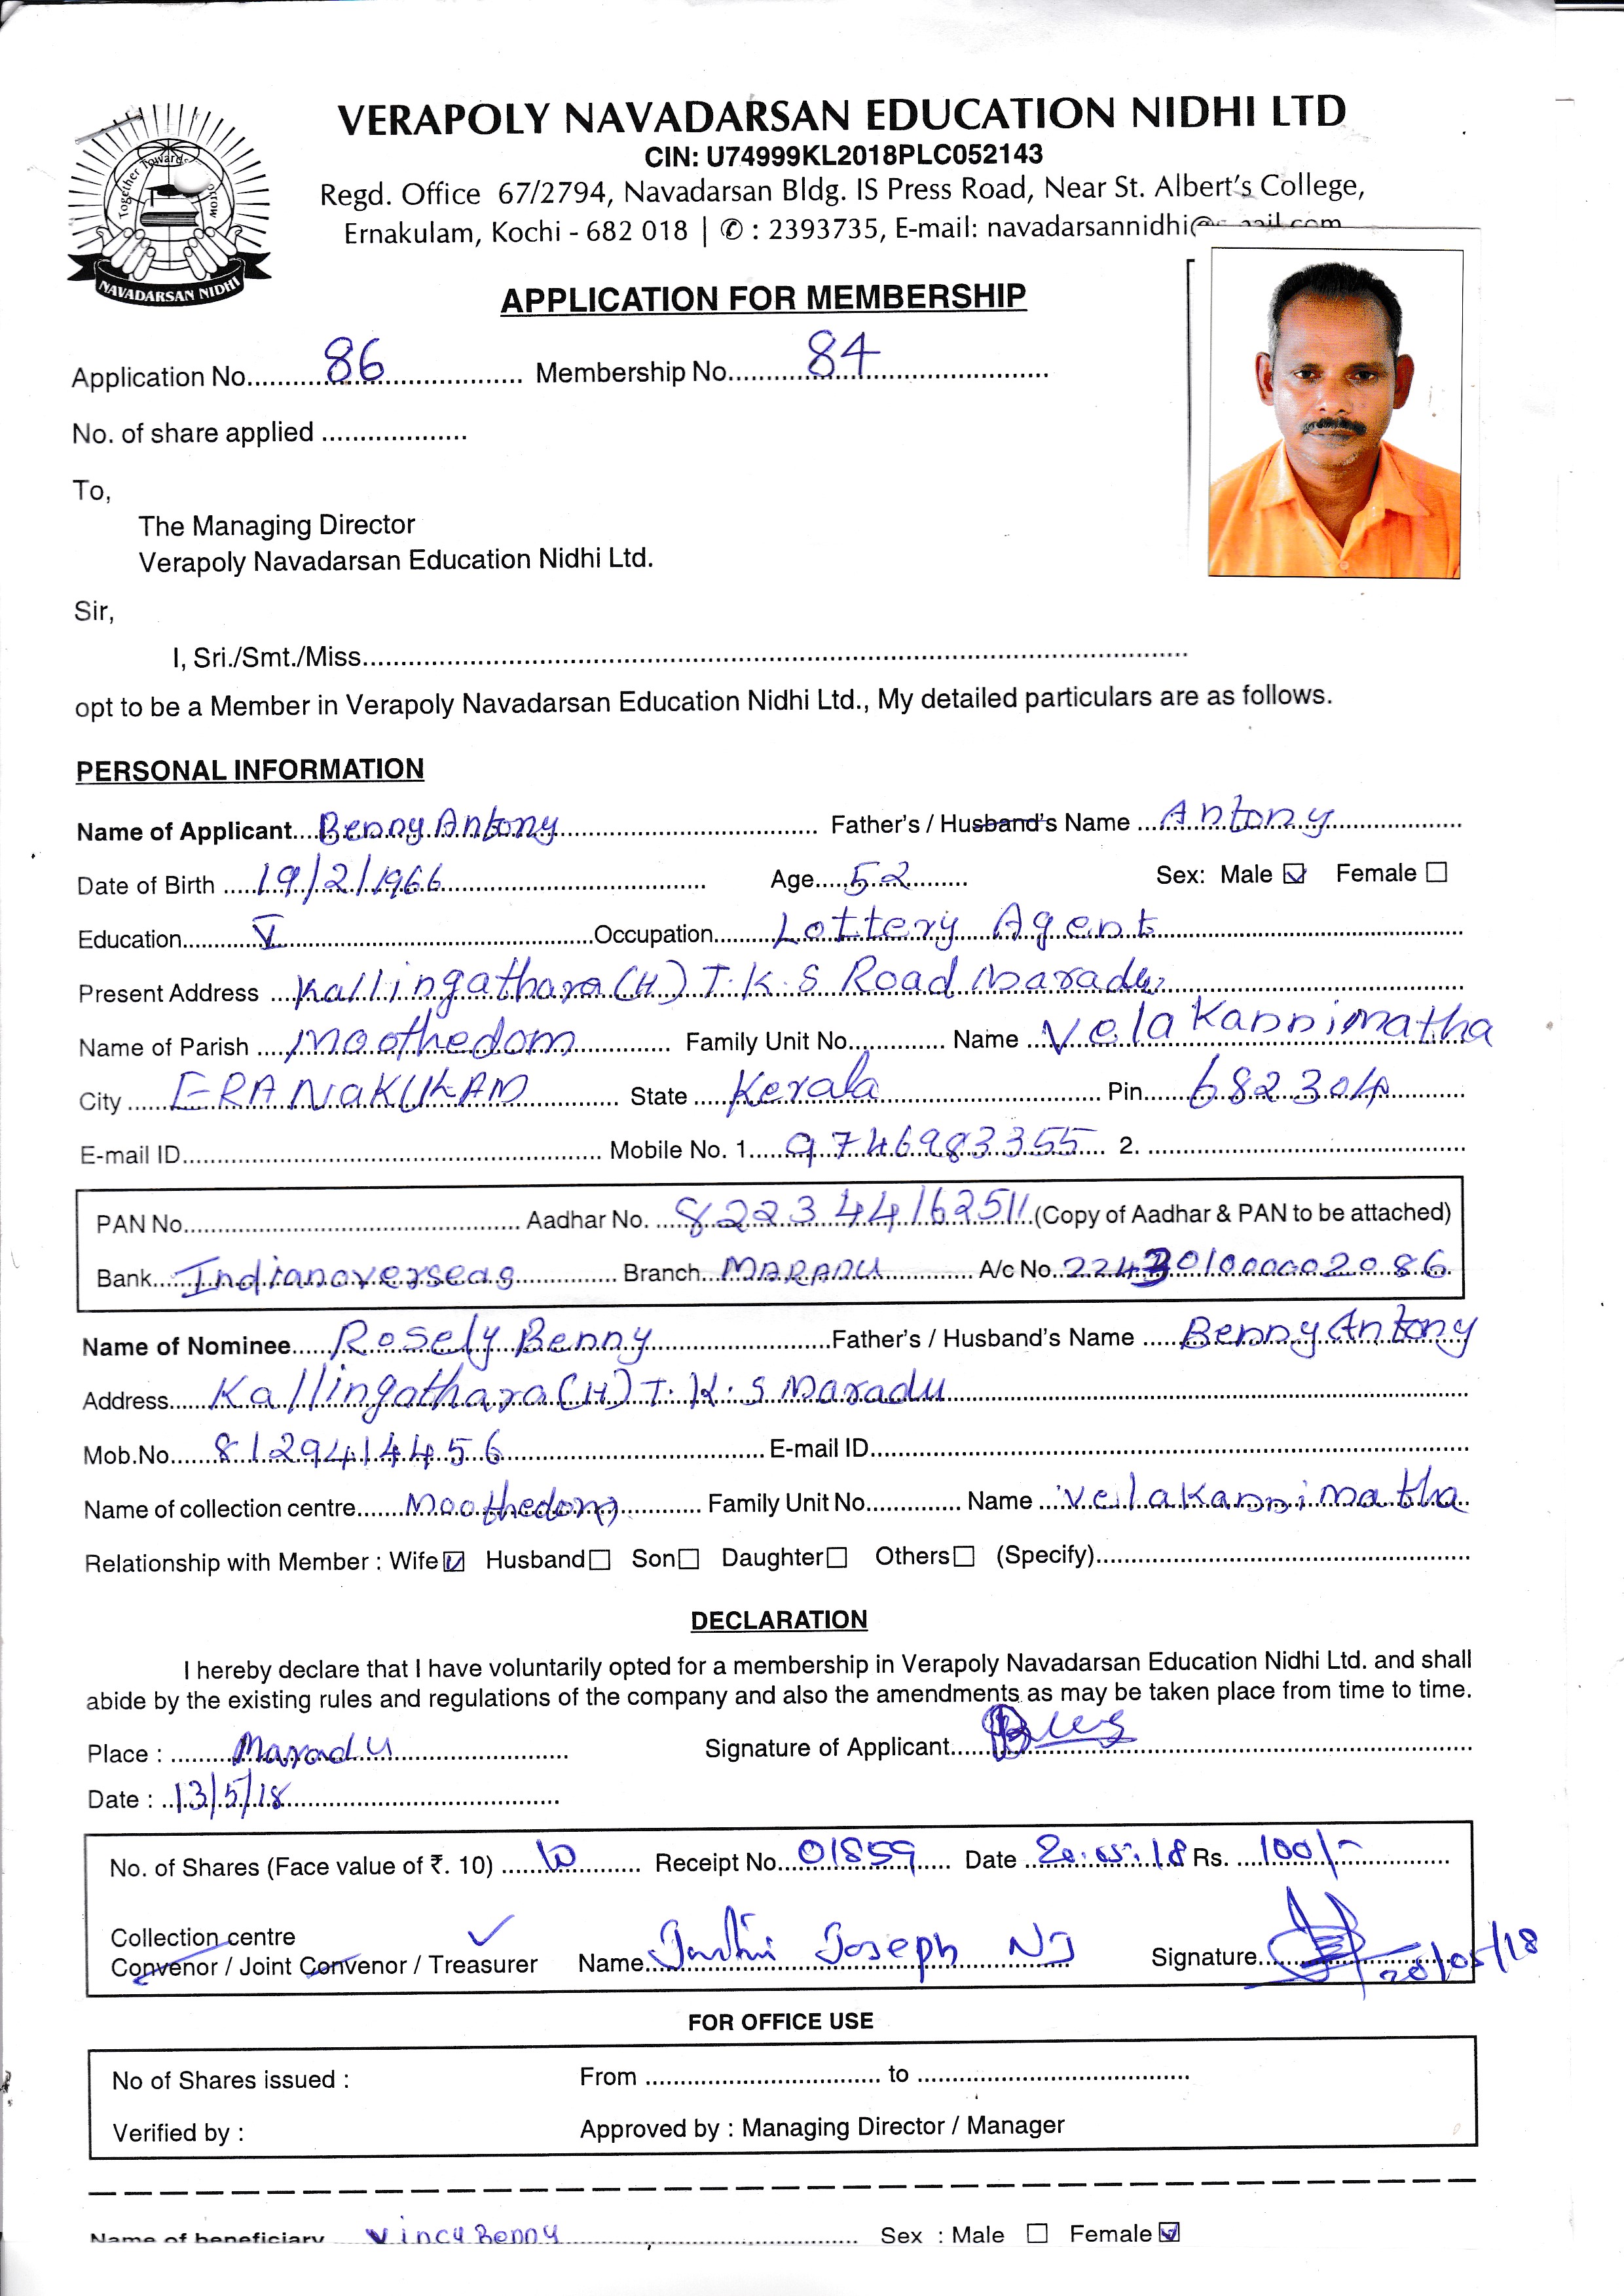 VERAPOLY NAVADARSAN EDUCATION NIDHI LTD
CIN: U74999KL2018PLC052143
Regd. Office 67/2794, Navadarsan Bldg. IS Press Road, Near St. Albert's College,
Ernakulam, Kochi - 682 018 | ✆ : 2393735, E-mail: navadarsannidhi@
Together Towards
NAVADARSAN NIDHI
APPLICATION FOR MEMBERSHIP
Application No. 86 Membership No. 84
No. of share applied
To,
The Managing Director
Verapoly Navadarsan Education Nidhi Ltd.
Sir,
I, Sri./Smt./Miss
opt to be a Member in Verapoly Navadarsan Education Nidhi Ltd., My detailed particulars are as follows.
PERSONAL INFORMATION
Name of Applicant Benny Antony Father's / Husband's Name Antony
Date of Birth 19/2/1966 Age 52 Sex: Male ☑ Female ☐
Education V Occupation Lottery Agent
Present Address Kallingathara (H) T.K.S Road Maradu
Name of Parish Moothedom Family Unit No. Name VelaKannimatha
City ERANAKULAM State Kerala Pin 682304
E-mail ID Mobile No. 1. 9746983355 2.
PAN No. Aadhar No. 822344162511 (Copy of Aadhar & PAN to be attached)
Bank Indianoverseas Branch MARADU A/c No. 224301000002086
Name of Nominee Rosely Benny Father's / Husband's Name Benny Antony
Address Kallingathara (H) T.K.S Maradu
Mob.No. 8129414456 E-mail ID
Name of collection centre Moothedom Family Unit No. Name VeilaKannimatha
Relationship with Member : Wife ☑ Husband ☐ Son ☐ Daughter ☐ Others ☐ (Specify)
DECLARATION
I hereby declare that I have voluntarily opted for a membership in Verapoly Navadarsan Education Nidhi Ltd. and shall
abide by the existing rules and regulations of the company and also the amendments as may be taken place from time to time.
Place : Maradu Signature of Applicant
Date : 13/5/18
No. of Shares (Face value of ₹. 10) 10 Receipt No. 01859 Date 20.05.18 Rs. 100/-
Collection centre
Convenor / Joint Convenor / Treasurer Name Joseph NJ Signature 20/05/18
FOR OFFICE USE
No of Shares issued : From to
Verified by : Approved by : Managing Director / Manager
Name of beneficiary Vincy Benny Sex : Male ☐ Female ☑